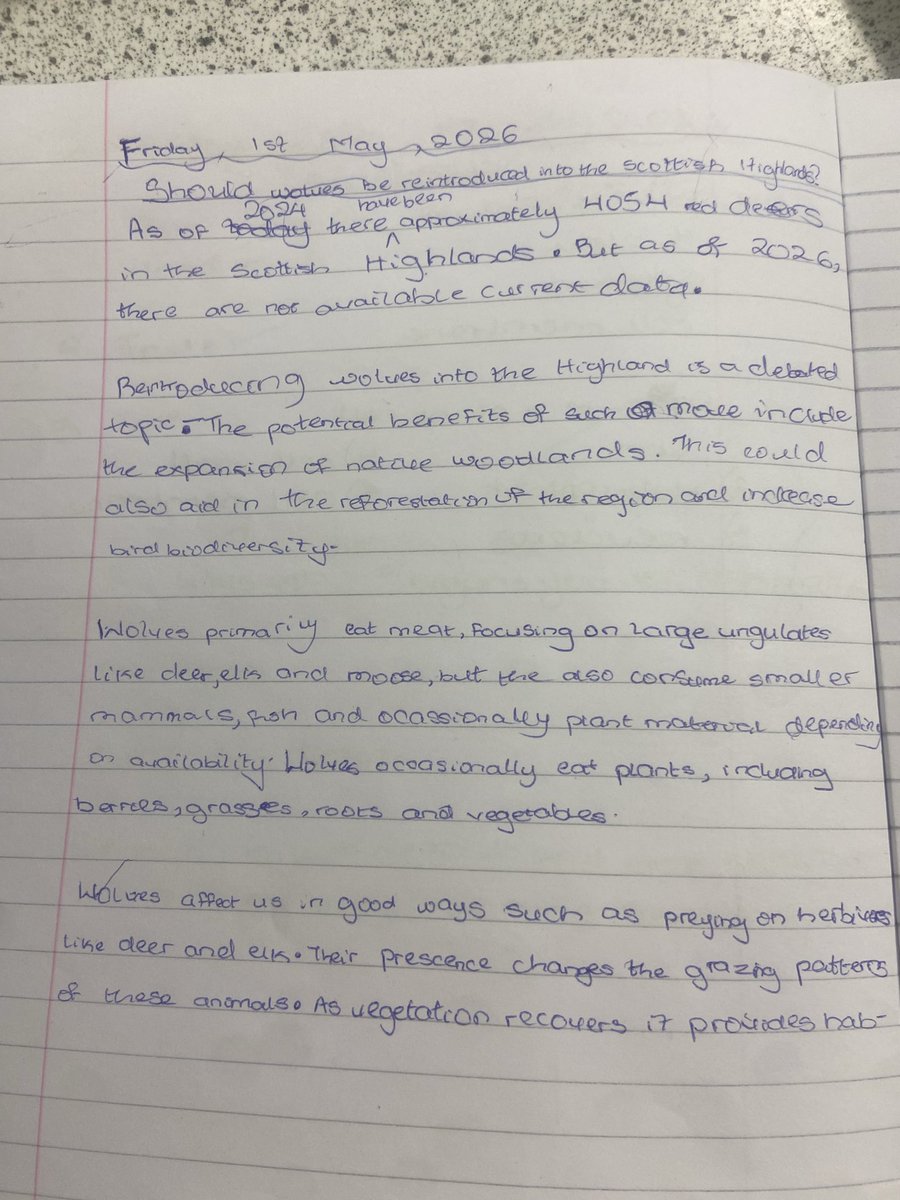 Friday, 1st May, 2026
Should wolves be reintroduced into the Scottish Highlands?
2024 have been
As of today there approximately 4054 red deers
in the Scottish Highlands. But as of 2026,
there are not available current data.
Reintroducing wolves into the Highland is a debated
topic. The potential benefits of such a move include
the expansion of native woodlands. This could
also aid in the reforestation of the region and increase
bird biodiversity.
Wolves primarily eat meat, focusing on large ungulates
like deer, elk and moose, but the also consume smaller
mammals, fish and ocassionally plant material depending
on availability. Wolves occasionally eat plants, including
berries, grasses, roots and vegetables.
Wolves affect us in good ways such as preying on herbivores
like deer and elk. Their prescence changes the grazing patterns
of these animals. As vegetation recovers it provides hab-